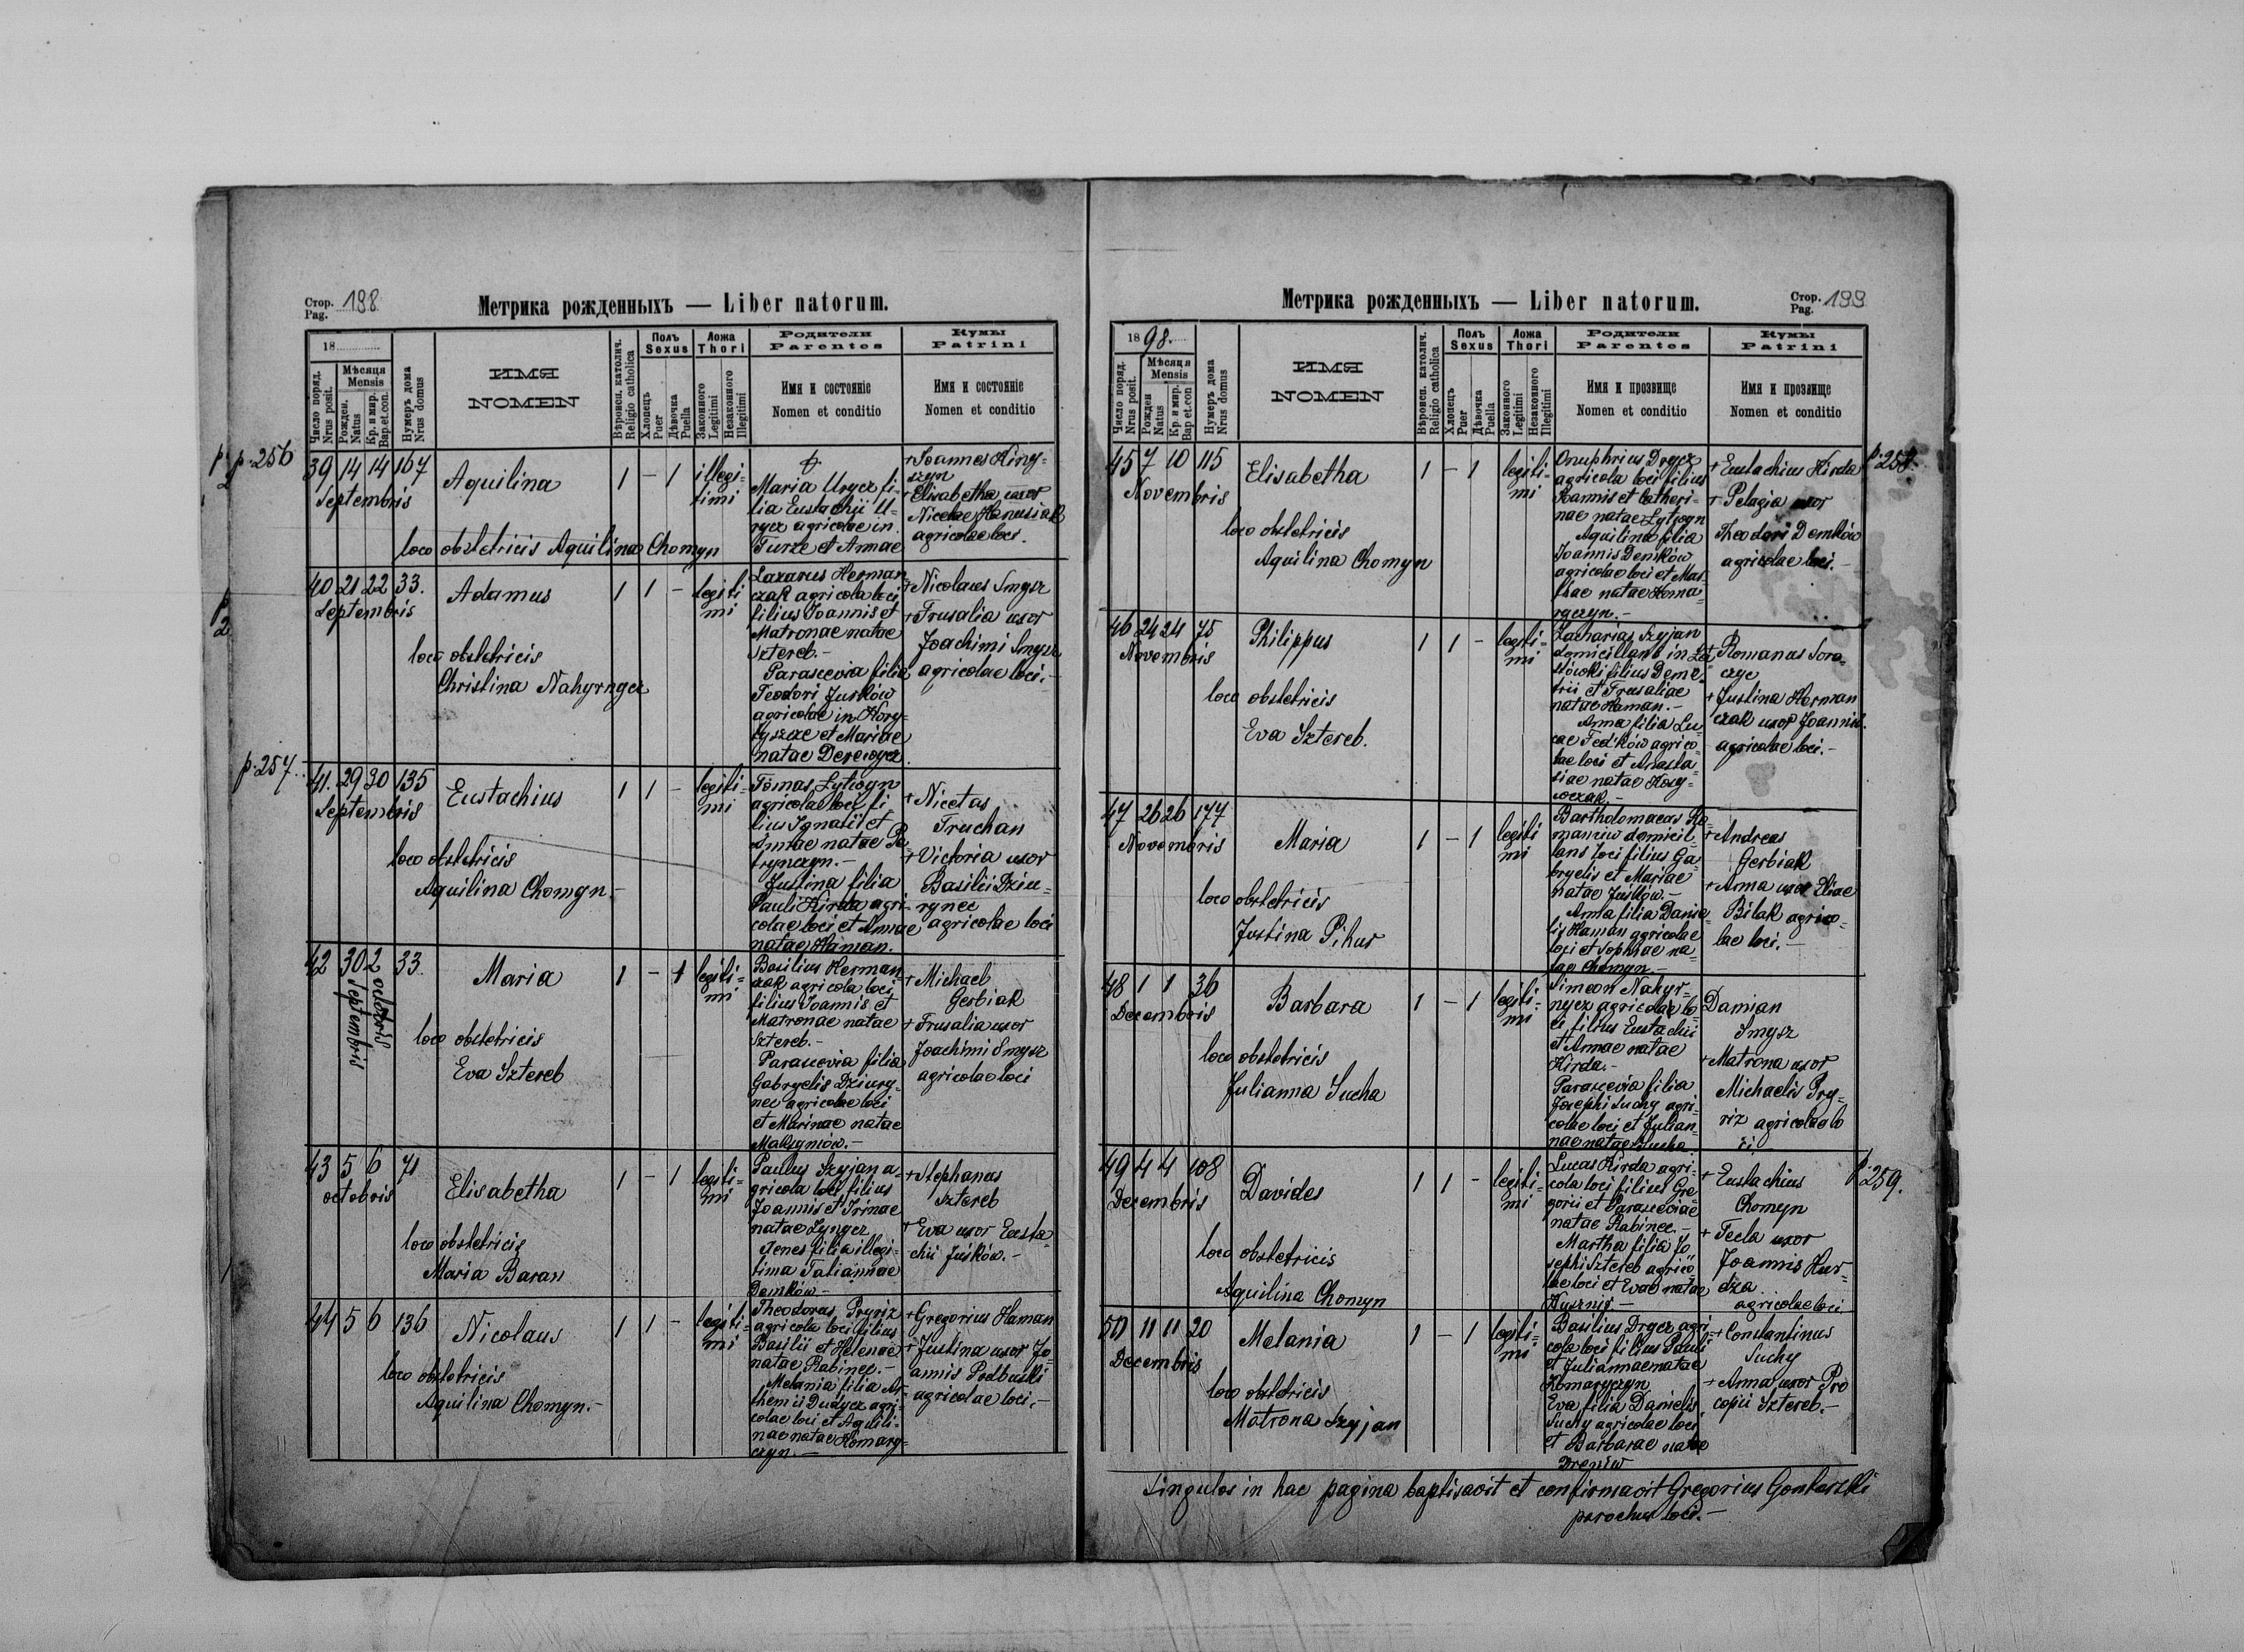 Стор. Pag. 198
Метрика рожденныхъ — Liber natorum.
18
Число поряд. Nrus posit.
Мѣсяця Mensis
Рожден. Natus
Кр. и мир. Bap. et. con.
Нумеръ дома Nrus domus
ИМЯ
NOMEN
Вѣроисп. католич. Religio catholica
Полъ Sexus
Хлопець Puer
Дѣвочка Puella
Ложа Thori
Законного Legitimi
Незаконного Illegitimi
Родители
Parentes
Имя и состояніе
Nomen et conditio
Кумы
Patrini
Имя и состояніе
Nomen et conditio
p. 256
39 14 14 167 Aquilina 1 - 1 illegi-
timi
Septembris
loco obstetricis Aquilina Chomyn
Maria Urycz fi-
lia Eustachii U-
rycz agricolae in
Turze et Annae
+ Joannes Hiny-
szyn
+ Elisabetha uxor
Nicolae Hanusiak
agricolae loci.
40 21 22 33. Adamus 1 1 - legiti
mi
Septembris
loco obstetricis
Christina Nahyrnycz
Lazarus Herman-
czak agricola loci
filius Joannis et
Matronae natae
Sztereb.-
Parascevia filia
Teodori Jurków
agricolae in Hory-
et Mariae
natae Derewycz
+ Nicolaus Smysz
+ Frusalia uxor
Joachimi Smysz
agricolae loci.-
p. 257.
41. 29 30 135 Eustachius 1 1 - legiti-
mi
Septembris
loco obstetricis
Aquilina Chomyn.-
Tomas Lytwyn
agricola loci fi
lius Ignatii et
Annae natae Pe-
trynczyn.-
Justina filia
Pauli Hirda agri-
colae loci et Annae
natae Haman.
+ Nicetas
Truchan
+ Victoria uxor
Basilii Dziu-
rynec
agricolae loci
42 30 2 33. Maria 1 - 1 legiti-
mi
Septembris
octobris
loco obstetricis
Eva Sztereb
Basilius Herman
czak agricola loci
filius Joannis et
Matronae natae
Sztereb.-
Parascevia filia
Gabryelis Dziury-
nec agricolae loci
et Marinae natae
Maksymów.-
+ Michael
Gerbiak
+ Frusalia uxor
Joachimi Smysz
agricolae loci
43 5 6 71 Elisabetha 1 - 1 legiti-
mi
octobris
loco obstetricis
Maria Baran
Paulus Szyjan a-
gricola loci filius
Joannis et Irinae
natae Lyngcz
Agnes filia illegi-
tima Tatiannae
Demków.-
+ Stephanus
Sztereb
+ Eva uxor Eusta-
chii Juśków.-
44 5 6 136 Nicolaus 1 1 - legiti-
mi
loco obstetricis
Aquilina Chomyn.-
Theodorus Pryriz
agricola loci filius
Basilii et Helenae
natae Rabinec.-
Melania filia Ar-
themii Dudycz agri-
colae loci et Aquili-
nae natae Komary-
czyn.-
+ Gregorius Haman
+ Justina uxor Jo-
annis Podbuski
agricolae loci.-
Метрика рожденныхъ — Liber natorum.
Стор. Pag. 199
1898.
Число поряд. Nrus posit.
Мѣсяця Mensis
Рожден Natus
Кр. и мир. Bap et.con
Нумеръ дома Nrus domus
ИМЯ
NOMEN
Вѣроисп. католич. Religio catholica
Полъ Sexus
Хлопець Puer
Дѣвочка Puella
Ложа Thori
Законного Legitimi
Незаконного Illegitimi
Родители
Parentes
Имя и прозвище
Nomen et conditio
Кумы
Patrini
Имя и прозвище
Nomen et conditio
p. 258.
45 7 10 115 Elisabetha 1 - 1 legiti-
mi
Novembris
loco obstetricis
Aquilina Chomyn
Onuphrius Drycz
agricola loci filius
Joannis et Catheri-
nae natae Lytwyn
Aquilina filia
Joannis Demków
agricolae loci et Mar-
thae natae Koma-
ryczyn.-
+ Eustachius Hirda
+ Pelagia uxor
Theodori Demków
agricolae loci.-
46 24 24 75 Philippus 1 1 - legiti-
mi
Novembris
loco obstetricis
Eva Sztereb.
Zacharias Szyjan
domicilians in
filius Deme-
trii et Frusaliae
natae Haman.-
Anna filia Lu-
cae Fedków agrico-
lae loci et Anasta-
siae natae Hory-
+ Romanus Soro-
czyc
+ Justina Herman
czak uxor Joannis
agricolae loci.-
47 26 26 177 Maria 1 - 1 legiti
mi
Novembris
loco obstetricis
Justina Pihur
Bartholomaeus Ro-
maniw domicil-
ians loci filius Ga-
bryelis et Mariae
natae Juśków.-
Anna filia Danie-
lis Haman agricolae
loci et Sophiae na-
tae Chomyn.-
+ Andreas
Gerbiak
+ Anna uxor Eliae
Bilak agrico-
lae loci.-
48 1 1 36 Barbara 1 - 1 legiti-
mi
Decembris
loco obstetricis
Julianna Sucha
Simeon Nahyr-
nycz agricola lo-
ci filius Eustachii
et Annae natae
Hirda.-
Parascevia filia
Josephi Suchy agri-
colae loci et Julian-
nae natae Sucha.
Damian
Smysz
+ Matrona uxor
Michaelis Pry-
riz agricolae lo
ci.-
p. 259.
49 4 4 108 Davides 1 1 - legiti-
mi
Decembris
loco obstetricis
Aquilina Chomyn
Lucas Hirda agri-
cola loci filius Gre-
gorii et Parasceviae
natae Rabinec.-
Martha filia Jo-
sephi Sztereb agrico-
lae loci et Evae natae
+ Eustachius
Chomyn
+ Tecla uxor
Joannis Hur-
dza
agricolae loci
50 11 11 20 Melania 1 - 1 legiti-
mi
Decembris
loco obstetricis
Matrona Szyjan
Basilius Drycz agri-
cola loci filius Pauli
et Juliannae natae
Komaryczyn
Eva filia Danielis
Suchy agricolae loci
et Barbarae natae
Dreniw
+ Constantinus
Suchy
+ Anna uxor Pro
copii Sztereb.-
Singulos in hac pagina baptisavit et confirmavit Gregorius
parochus loci.-